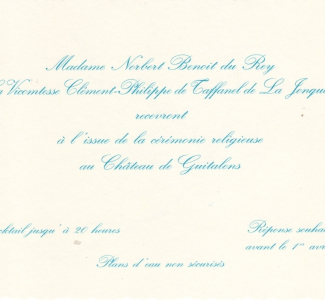 Madame Norbert Benoit du Rey
Vicomtesse Clément-Philippe de Taffanel de La Jonqu
recevront
à l'issue de la cérémonie religieuse
au Château de Guitalens
cktail jusqu'à 20 heures
Réponse souhai
avant le 1er avri
Plans d'eau non sécurisés